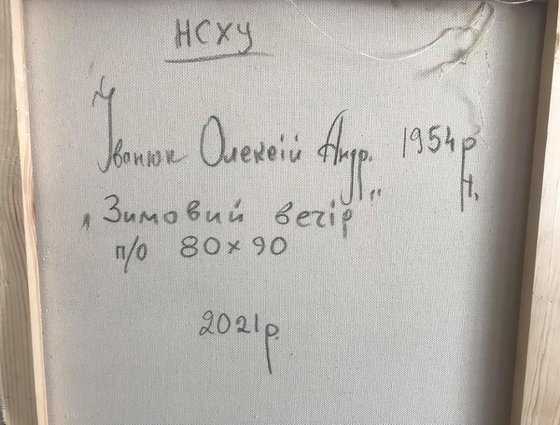 НСХУ
Іванюк Олексій Андр. 1954 р
н.
„Зимовий вечір"
п/о 80×90
2021р.